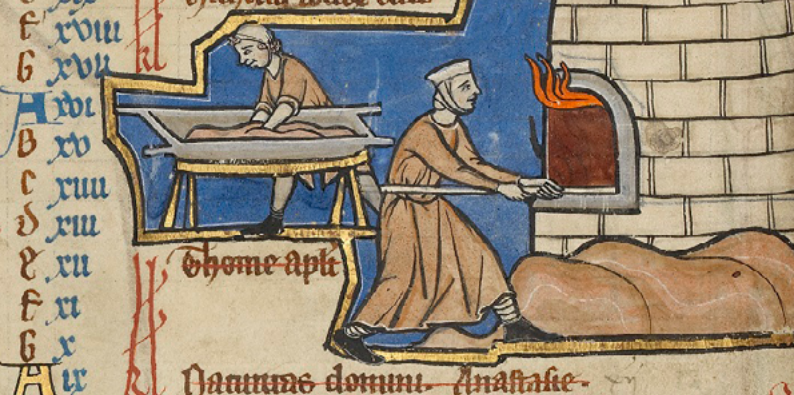 f xviii
G xvii
A xvi
B xv
c xiiii
d xiii
e xii
f xi
G x
A ix
Thome apli
Natiuitas domini. Anastasie.